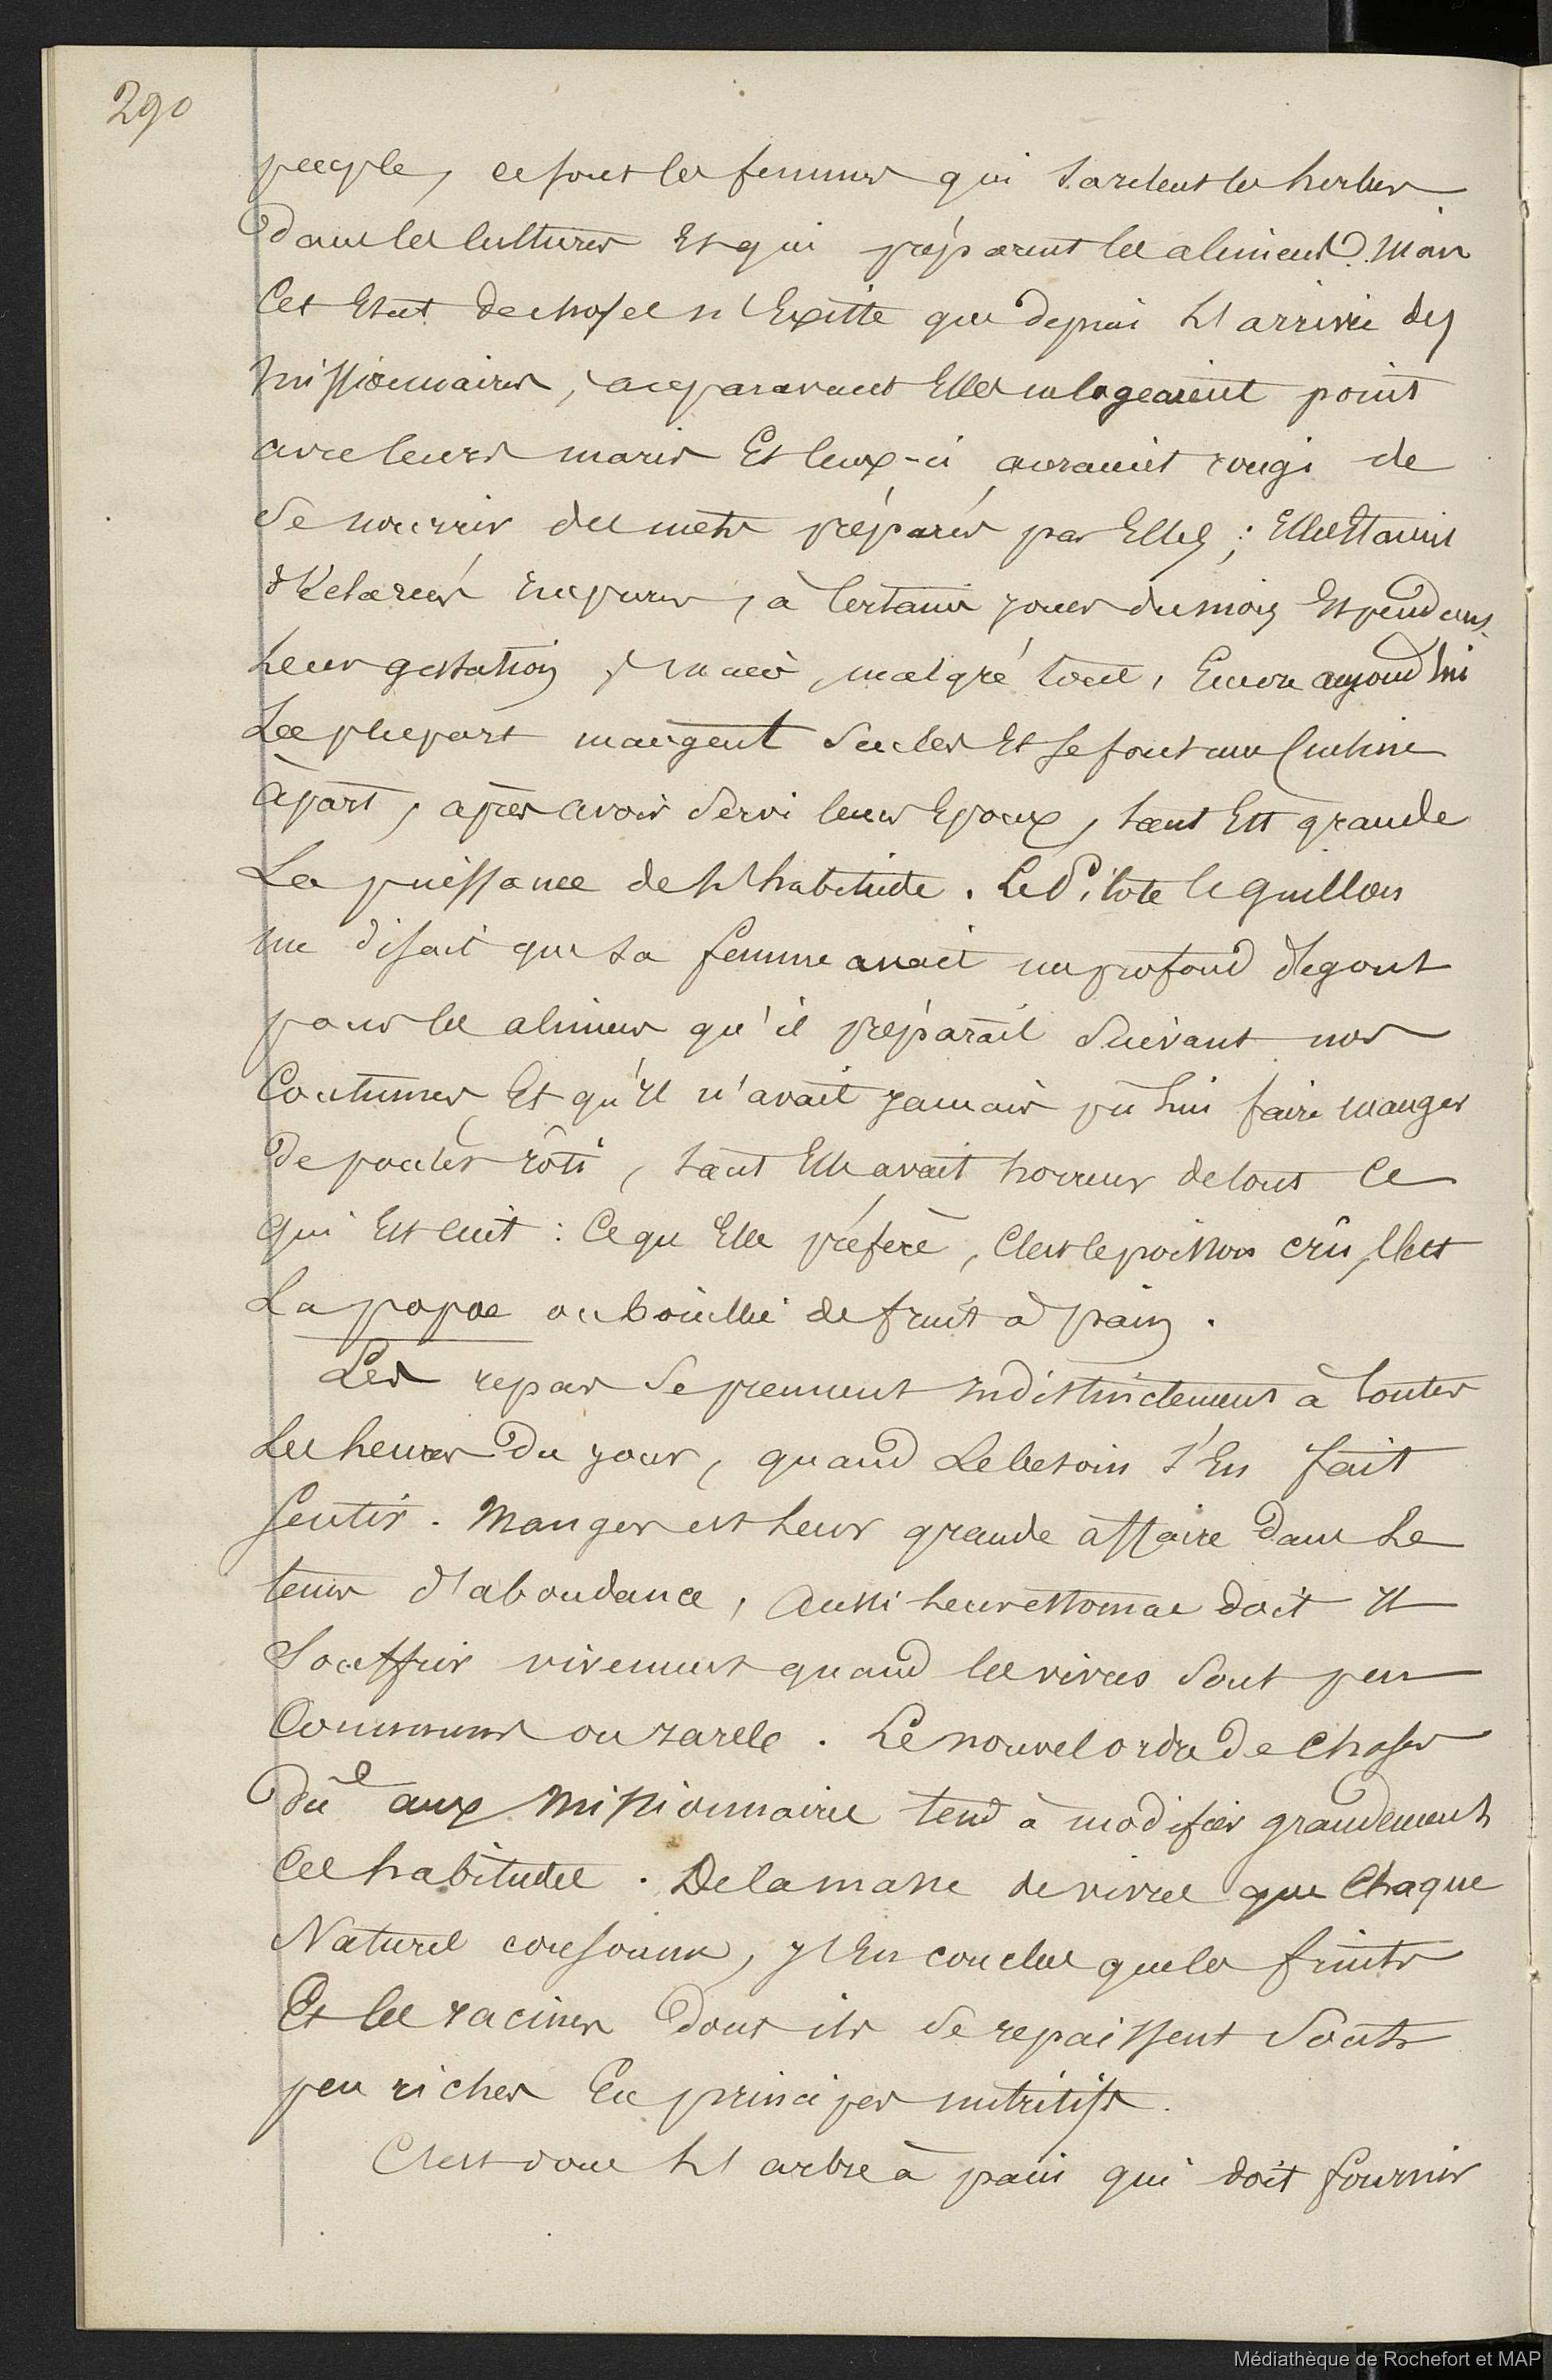 290
peuple, ce sont les femmes qui sardent les herbes
dans les cultures Et qui préparent les aliments. Mais
Cet Etat de choses n'Existe que depuis L'arrivée des
missionnaires, auparavant Elles ne logeaient point
avec leurs maris Et Ceux-ci auraient rougi de
se nourrir des mets préparés par Elles ; Elles Etaient
déclarées impures, à Certains jours du mois Et pendant
Leur gestation ; mais, malgré tout, Encore aujourd'hui
La plupart mangent Seules Et se font une Cuisine
à part, après avoir Servi leurs Epoux, tant Est grande
La puissance de L'habitude. Le Pilote le guillou
me disait que sa femme avait un profond dégout
pour les alimens qu'il préparait Suivant nos
Coutumes, Et qu'Il n'avait jamais pû Lui faire manger
De poulet rôti, tant Elle avait horreur de tout Ce
qui Est cuit : Ce qu'Elle préfère, C'est le poisson crû, C'est
La popoe ou bouillie de fruit à pain.
Les repas Se prennent Indistinctement à toutes
Les heures Du jour, quand Le besoin s'En fait
sentir. Manger est Leur grande affaire Dans Le
tems d'abondance, Aussi Leur estomac doit Il
Souffrir vivement quand les vivres Sont peu
Communs ou rares. Le nouvel ordre de Choses
Dû aux Missionnaires tend à modifier grandement
Ces habitudes. De la masse de vivres que Chaque
Naturel consomme, j'En conclus que les fruits
Et les racines Dont ils Se repaissent Sont
peu riches En principes nutritifs.
C'est donc L'arbre à pain qui doit fournir
Médiathèque de Rochefort et MAP